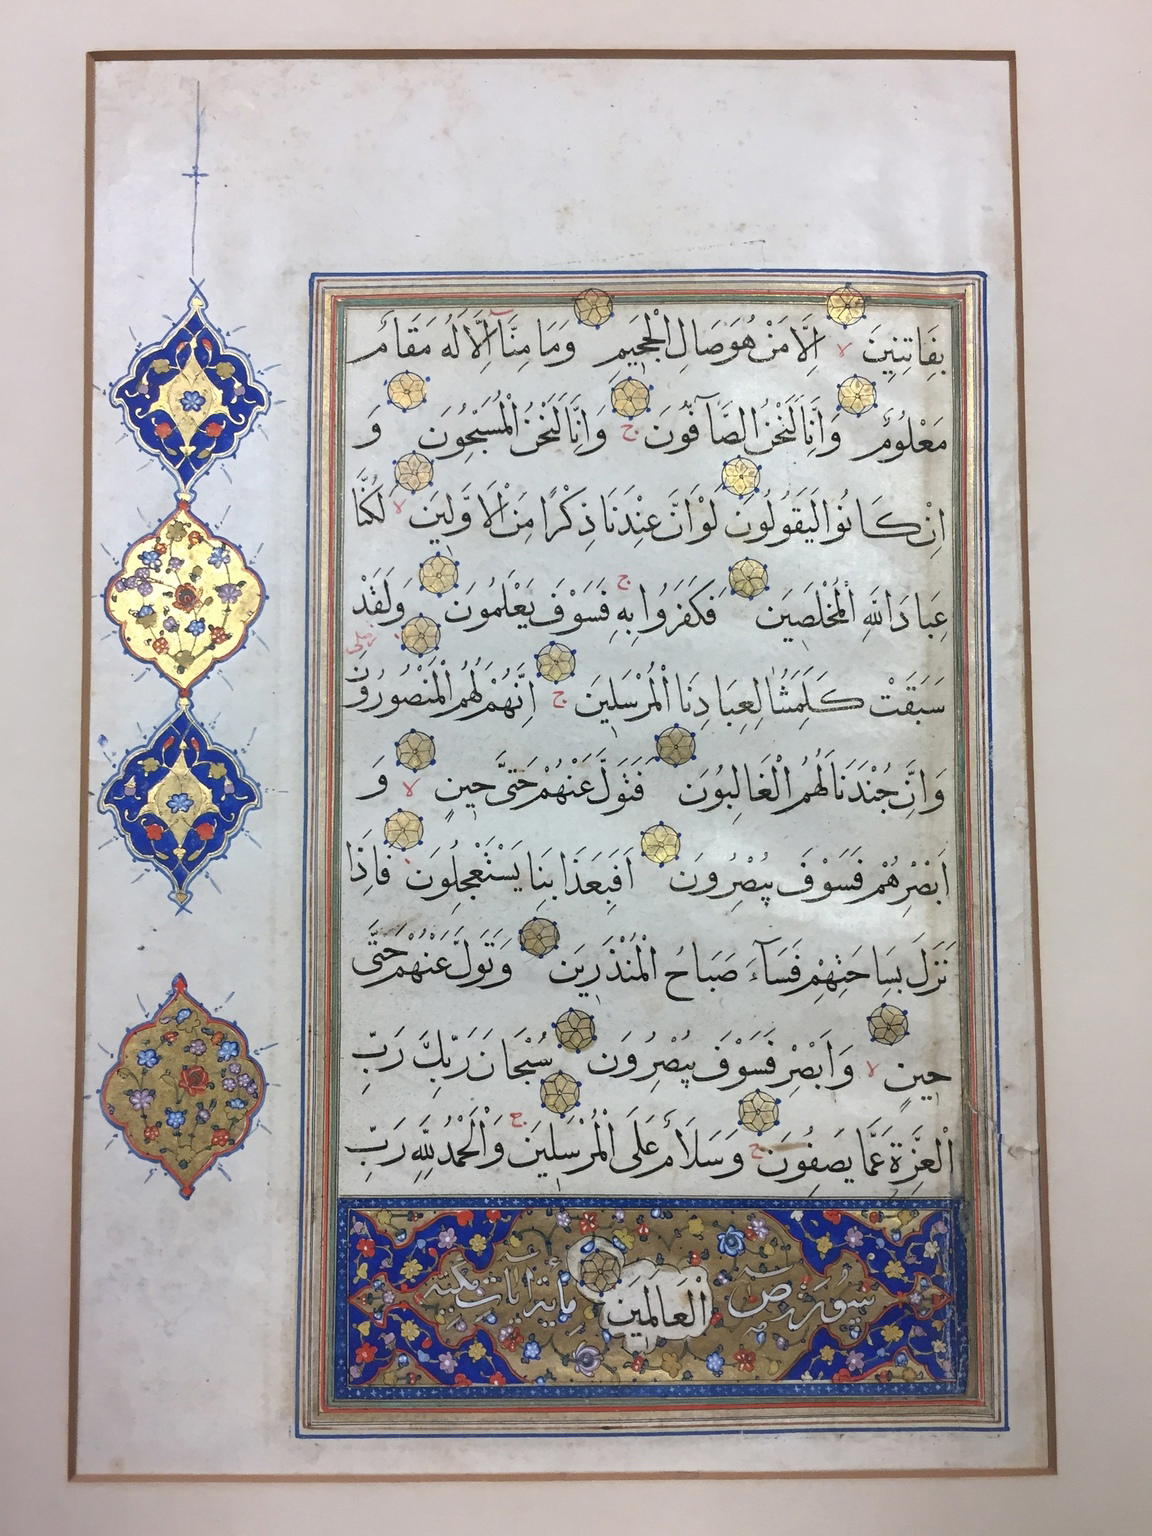 بِفَاتِنِينَ لا اِلَّا مَنْ هُوَ صَالِ الْجَحِيمِ وَمَا مِنَّا اِلَّا لَهُ مَقَامٌ
مَعْلُومٌ وَاِنَّا لَنَحْنُ الصَّآفُّونَ ج وَاِنَّا لَنَحْنُ الْمُسَبِّحُونَ وَ
اِنْ كَانُوا لَيَقُولُونَ لَوْ اَنَّ عِنْدَنَا ذِكْرًا مِنَ الْاَوَّلِينَ لا لَكُنَّا
عِبَادَ اللهِ الْمُخْلَصِينَ فَكَفَرُوا بِهِ ج فَسَوْفَ يَعْلَمُونَ وَلَقَدْ
سَبَقَتْ كَلِمَتُنَا لِعِبَادِنَا الْمُرْسَلِينَ ج اِنَّهُمْ لَهُمُ الْمَنْصُورُونَ
وَاِنَّ جُنْدَنَا لَهُمُ الْغَالِبُونَ فَتَوَلَّ عَنْهُمْ حَتَّى حِينٍ لا وَ
اَبْصِرْهُمْ فَسَوْفَ يُبْصِرُونَ اَفَبِعَذَابِنَا يَسْتَعْجِلُونَ فَاِذَا
نَزَلَ بِسَاحَتِهِمْ فَسَآءَ صَبَاحُ الْمُنْذَرِينَ وَتَوَلَّ عَنْهُمْ حَتَّى
حِينٍ لا وَاَبْصِرْ فَسَوْفَ يُبْصِرُونَ سُبْحَانَ رَبِّكَ رَبِّ
الْعِزَّةِ عَمَّا يَصِفُونَ ج وَسَلَامٌ عَلَى الْمُرْسَلِينَ ج وَالْحَمْدُ لِلّٰهِ رَبِّ
سورة ص الْعَالَمِينَ مكية